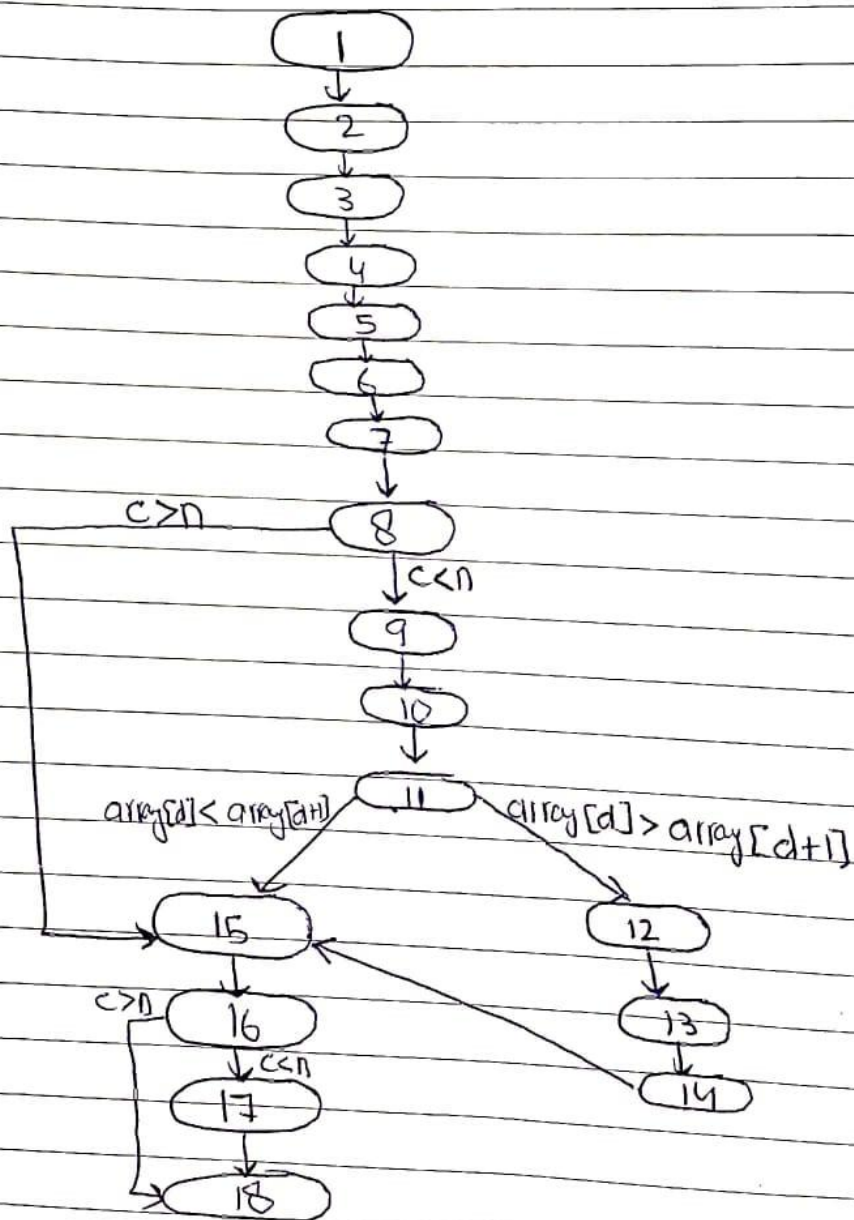 1
2
3
4
5
6
7
C>n
8
C<n
9
10
11
array[d]< array[d+1]
array[d]> array[d+1]
15
12
C>n
16
13
C<n
17
14
18